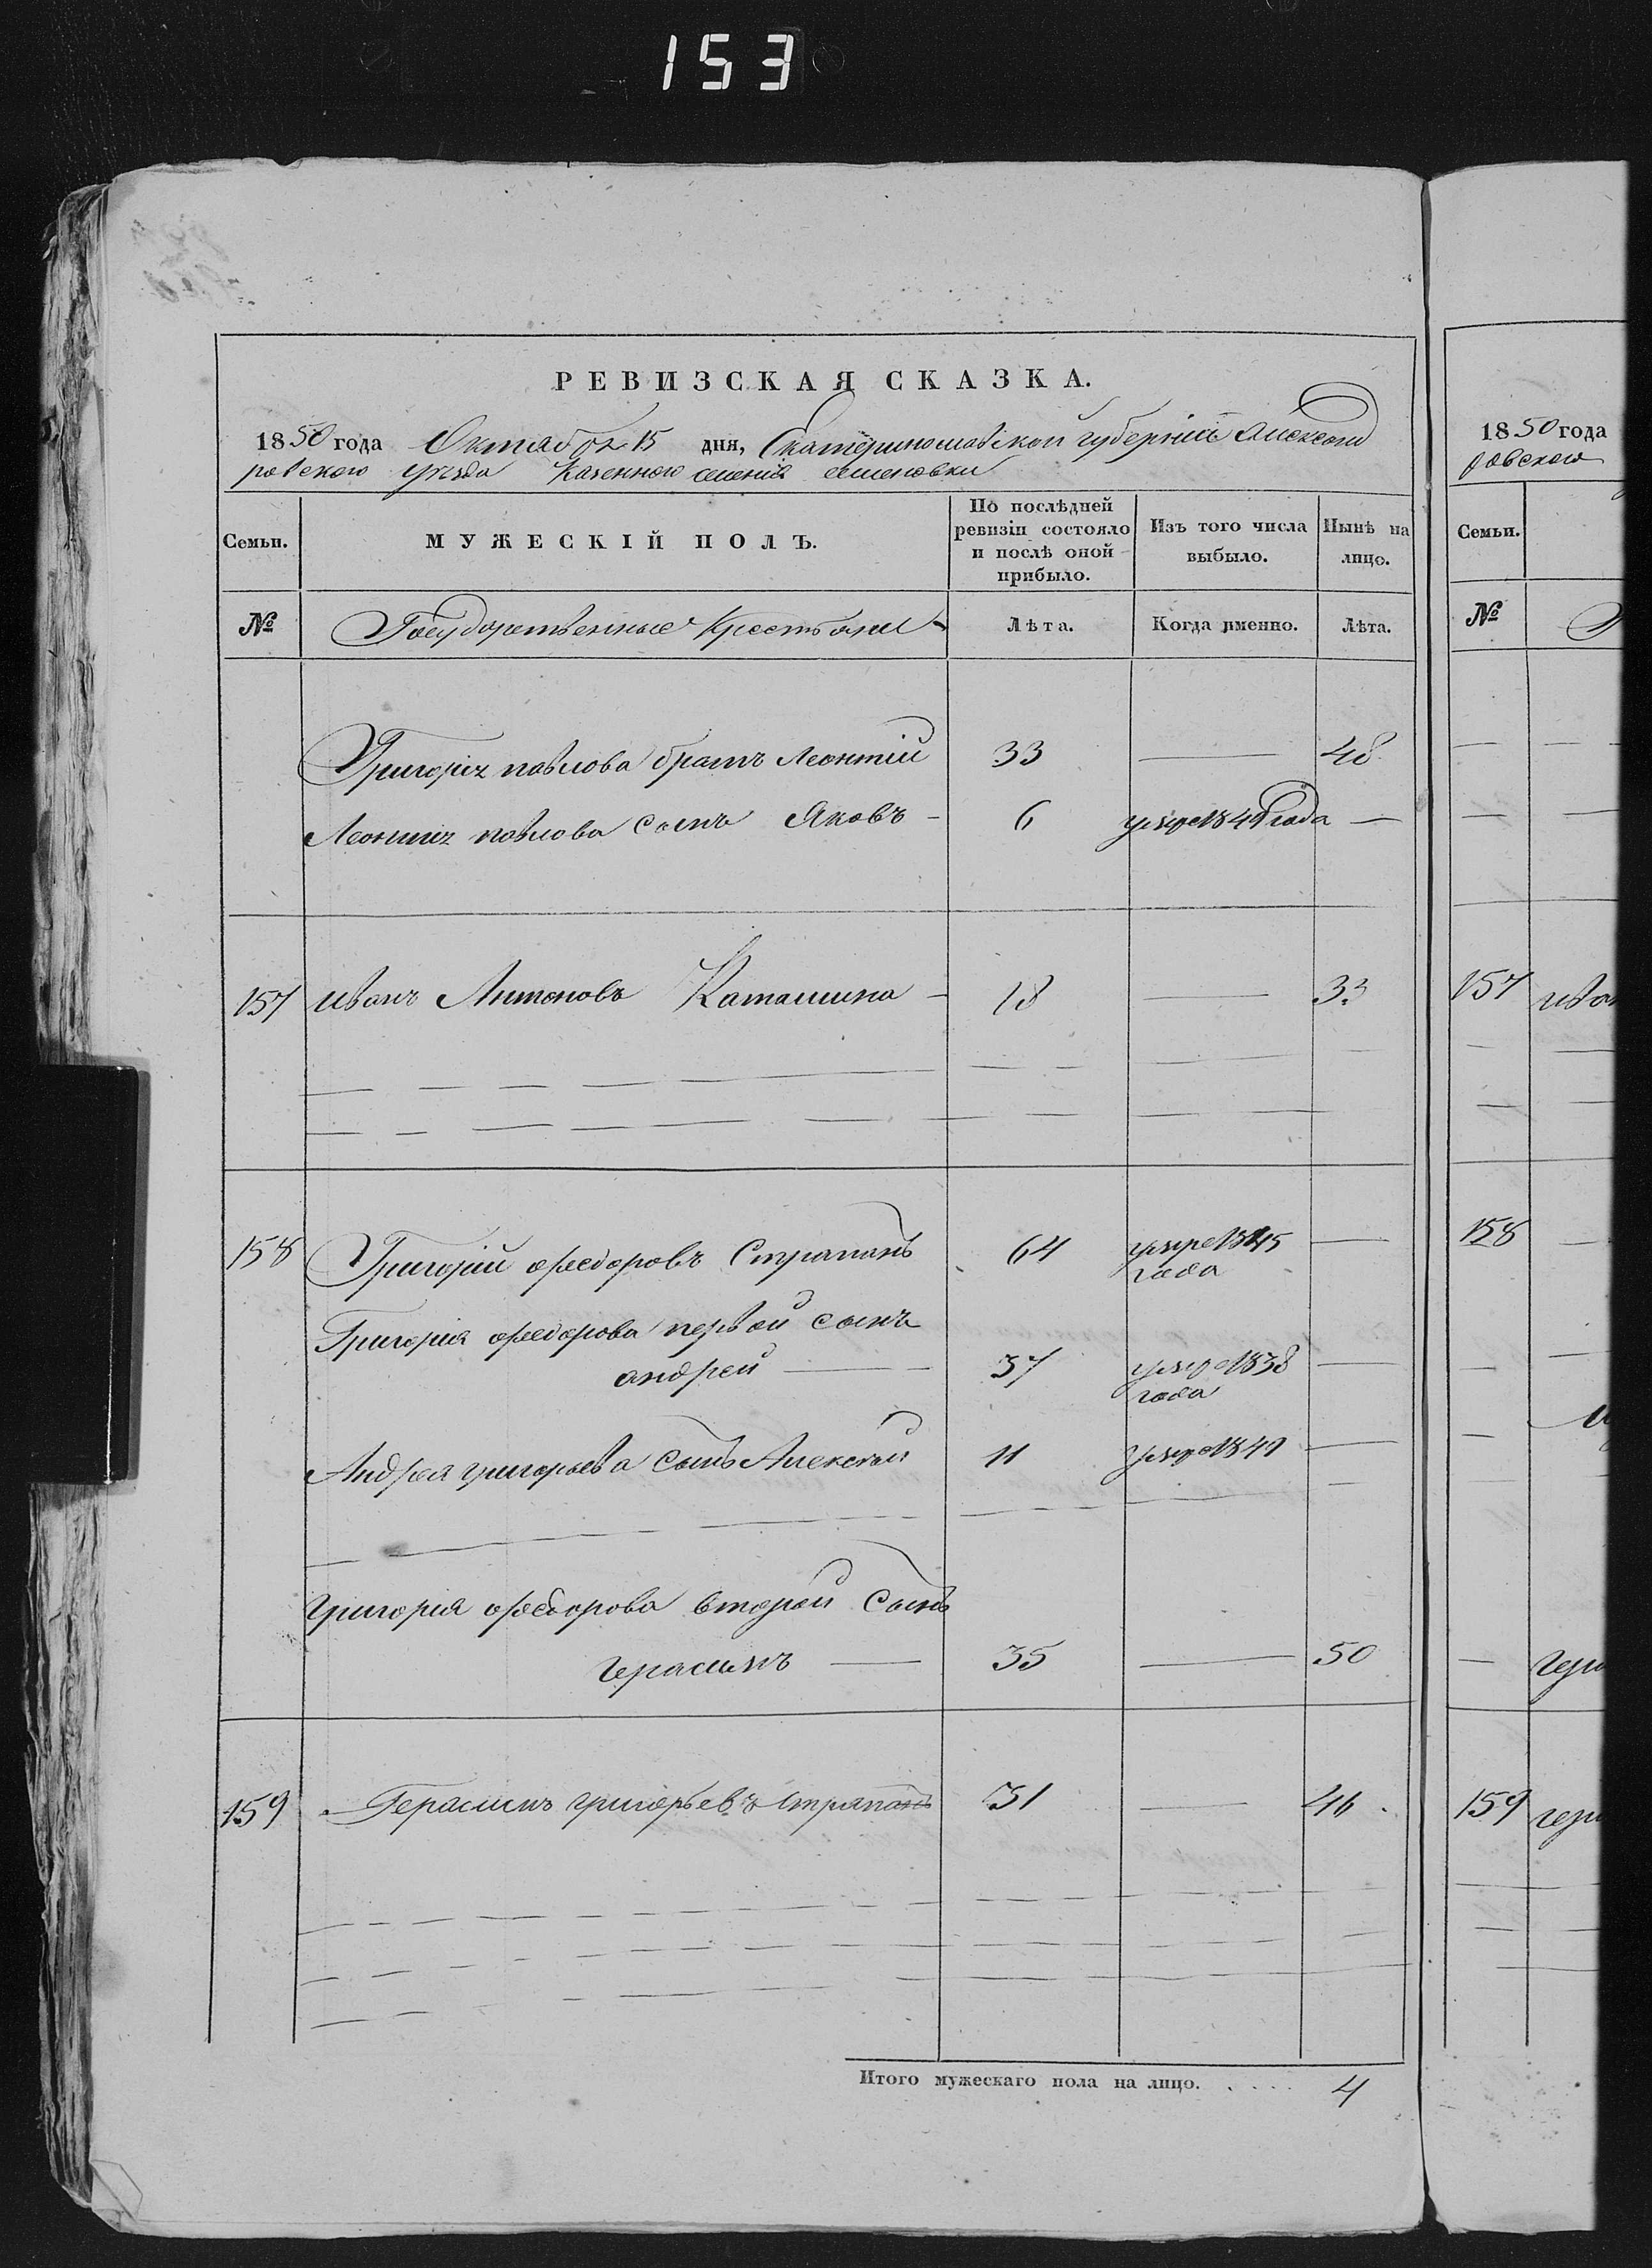 153
РЕВИЗСКАЯ СКАЗКА.
1850 года Октября 15 дня, Екатеринославской губернии Александ
ровского уѣзда Казенного селения семеновки
Семьи.
МУЖЕСКІЙ ПОЛЪ.
По послѣдней ревизіи состояло и послѣ оной прибыло.
Изъ того числа выбыло.
Нынѣ на лицо.
№ Государственные Крестьяни Лѣта. Когда именно. Лѣта.
Григорія павлова братъ Леонтій 33 — 48
Леонтія павлова сынъ Яковъ - 6 умре 1849 года —
157 иванъ Антоновъ - 18 — 33
158 Григорій федоровъ Стряпанъ 64 умре 1845 —
года
Григорія федорова первой сынъ
андрей — 37 умре 1838 —
года
Андрея григорьева сынъ Алексѣй 11 умре 1849 —
григорія федорова второй сынъ
герасимъ — 35 — 50
159 Герасимъ григорьевъ стряпанъ 31 — 46
Итого мужескаго пола на лицо. . . . . 4
1850 года
ровского
Семьи.
№
157
158
159